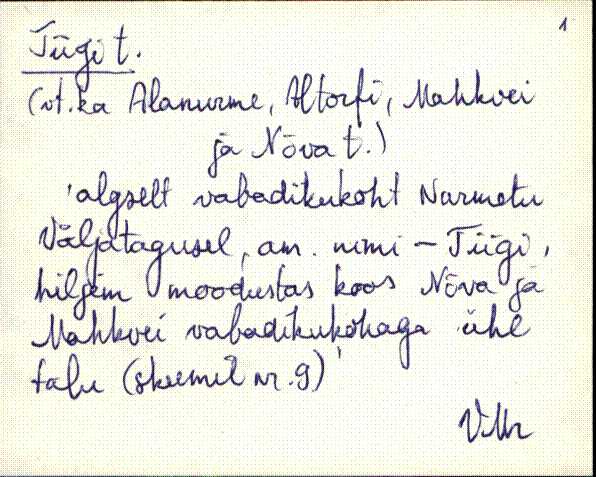 1
Tiigi t.
(vt. ka Alanurme, Altorfi, Mahkvei
ja Nõva t.)
'algselt vabadikukoht Nurmetu
Väljatagusel, am. nimi – Tiigi,
hiljem moodustas koos Nõva ja
Mahkvei vabadikukohaga ühe
talu (skeemil nr. 9)'